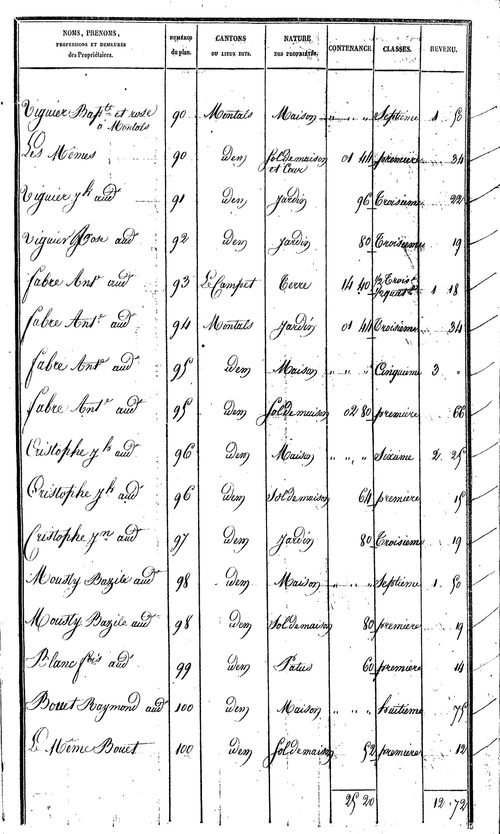 NOMS, PRENOMS,
PROFESSIONS ET DEMEURES
des Propriétaires.
NUMÉRO
du plan.
CANTONS
OU LIEUX DITS.
NATURE
DES PROPRIÉTÉS.
CONTENANCE.
CLASSES.
REVENU.
Viguier Bapte et rose 90 Montals Maison " " " Septième 1 50
à Montals
Les Mêmes 90 idem Sol de maison 01 44 première 34
et Cour
Viguier jh aud 91 idem Jardin 96 Troisième 22
Viguier Rose aud 92 idem Jardin 80 Troisième 19
fabre Ante aud 93 Le Campet Terre 14 40 1/2 Troise 1 18
1/2 quate
fabre Ante aud 94 Montals Jardin 01 44 Troisième 34
fabre Ante aud 95 idem Maison " " " Cinquième 3 "
fabre Ante aud 95 idem Sol de maison 02 80 première 66
Cristophe jh aud 96 idem Maison " " " Sixième 2 25
Cristophe jh aud 96 idem Sol de maison 64 première 15
Cristophe jn aud 97 idem Jardin 80 Troisième 19
Mousty Bazile aud 98 idem Maison " " " Septième 1 50
Mousty Bazile aud 98 idem Sol de maison 80 première 19
Blanc fois aud 99 idem Patus 60 première 14
Bouet Raymond aud 100 idem Maison " " " huitième 75
Le Même Bouet 100 idem Sol de maison 52 première 12
25 20 12 72